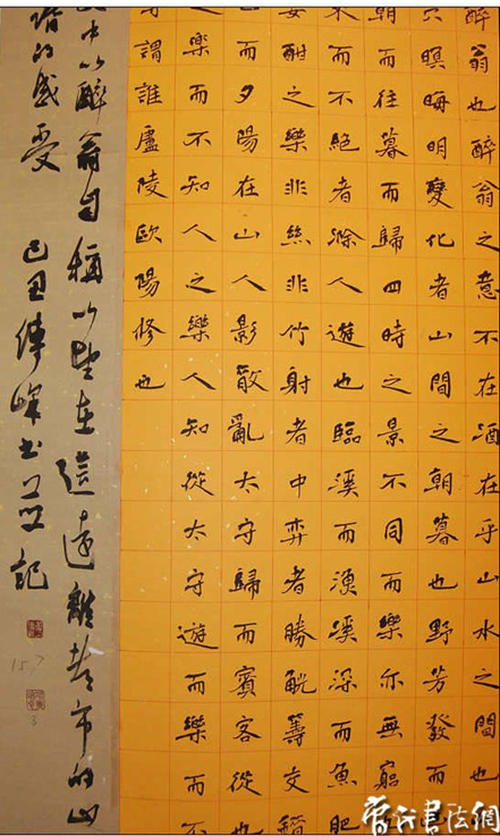 醉翁也醉翁之意不在酒在乎山水之間也
穴暝晦明變化者山間之朝暮也野芳發而
朝而往暮而歸四時之景不同而樂亦無窮也
來而不絕者滁人遊也臨溪而漁溪深而魚肥
宴酣之樂非絲非竹射者中弈者勝觥籌交錯
而夕陽在山人影散亂太守歸而賓客從也
樂而不知人之樂人知從太守遊而樂而不
守謂誰廬陵歐陽修也
文中以醉翁自稱以望在這遠離都市的山
的感受
己丑 峰书並記
15.7
3
书法網